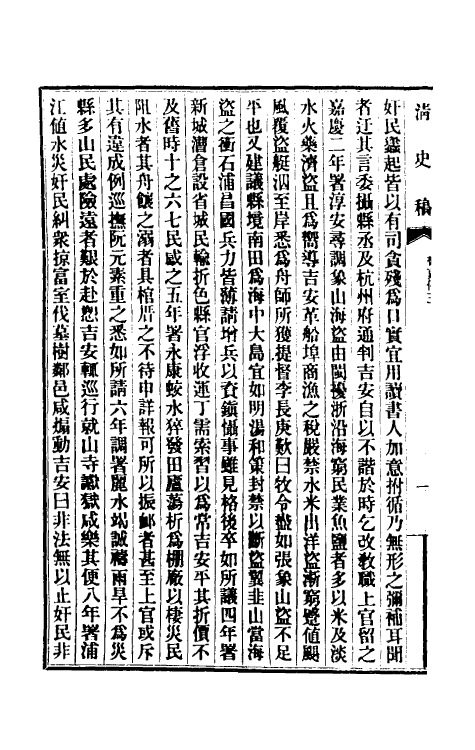 清史稿
奸民蠭起皆以有司貪殘爲口實宜用讀書人加意拊循乃無形之彌補耳聞
者迂其言委攝縣丞及杭州府通判吉安自以不諧於時乞改敎職上官留之
嘉慶二年署淳安尋調象山海盜由閩擾浙沿海窮民業魚鹽者多以米及淡
水火藥濟盜且爲嚮導吉安革船埠商漁之稅嚴禁水米出洋盜漸窮蹙值颶
風覆盜艇泅至岸悉爲舟師所獲提督李長庚歎曰牧令盡如張象山盜不足
平也又建議縣境南田爲海中大島宜如明湯和策封禁以斷盜翼韭山當海
盜之衝石浦昌國兵力皆薄請增兵以資鎭懾事雖見格後卒如所議四年署
新城漕倉設省城民輸折色縣官浮收運丁需索習以爲常吉安平其折價不
及舊時十之六七民感之五年署永康蛟水猝發田廬蕩析爲棚廠以棲災民
阻水者具舟饟之溺者具棺厝之不待申詳報可所以振卹者甚至上官或斥
其有違成例巡撫阮元素重之悉如所請六年調署麗水竭誠禱雨旱不爲災
縣多山民處險遠者艱於赴愬吉安輒巡行就山寺讞獄咸樂其便八年署浦
江値水災奸民糾衆掠富室伐墓樹鄰邑咸煽動吉安曰非法無以止奸民非
一